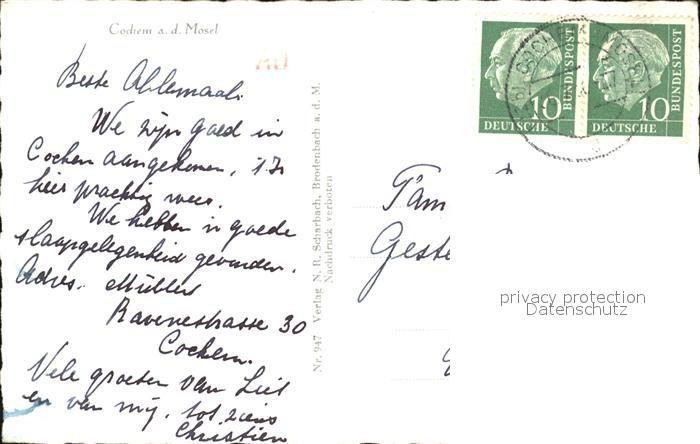 Cochem a. d. Mosel
Beste Allemaal.
We zijn goed in
Cochem aangekomen, 't Is
hier prachtig weer.
We hebben 'n goede
slaapgelegenheid gevonden.
Adres. Müller
Ravenestrasse 30
Cochem.
Vele groeten van Liet
en van mij. tot ziens
Christien
Nr. 947 Verlag N. R. Scharbach, Brodenbach a. d. M.
Nachdruck verboten
10
DEUTSCHE
BUNDESPOST
10
DEUTSCHE
BUNDESPOST
Fam
Geste
privacy protection
Datenschutz